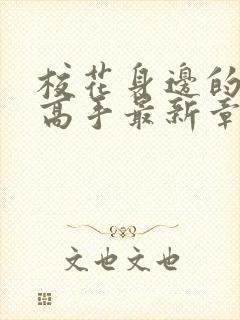 校花身边的
高手最新章
文也文也